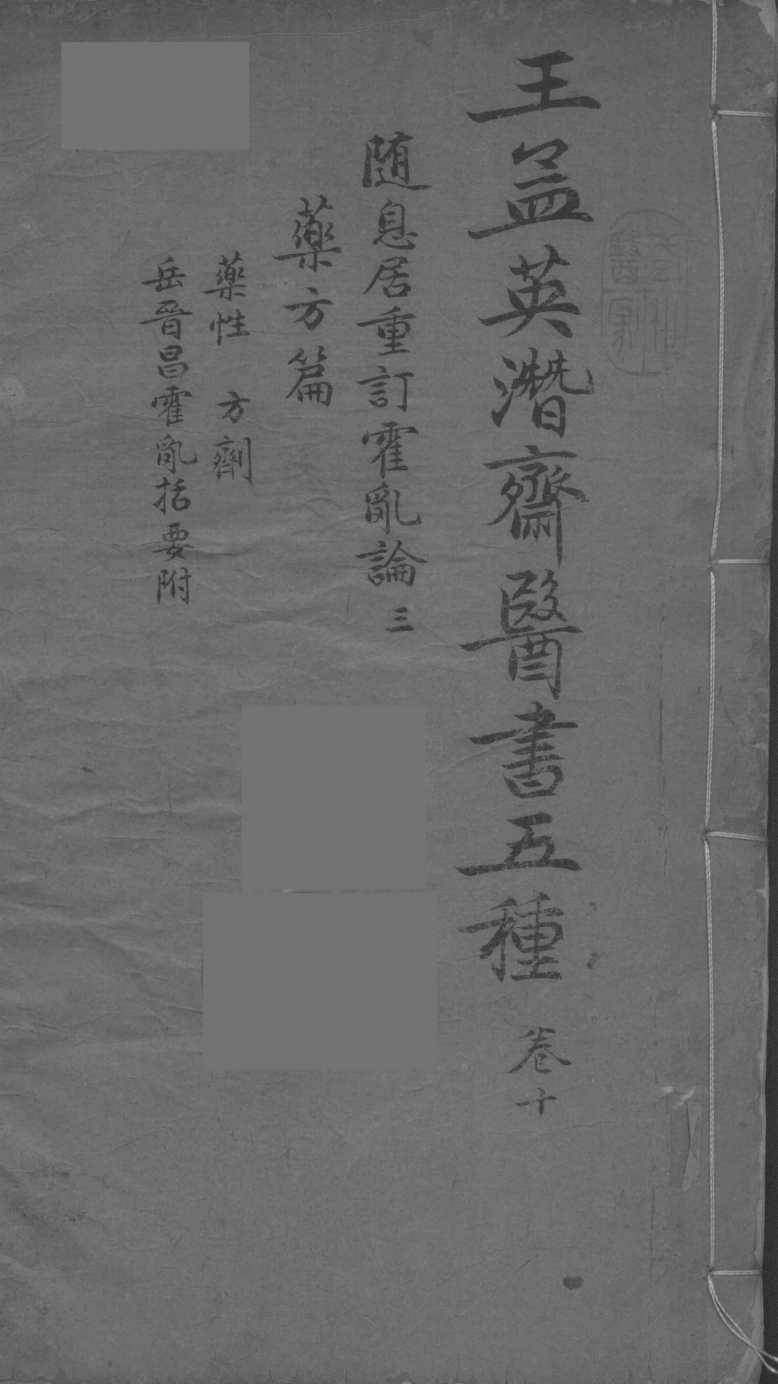 王益英潛齋醫書五種 卷十
随息居重訂霍亂論 三
藥方篇
藥性 方劑
岳晉昌霍亂括要附